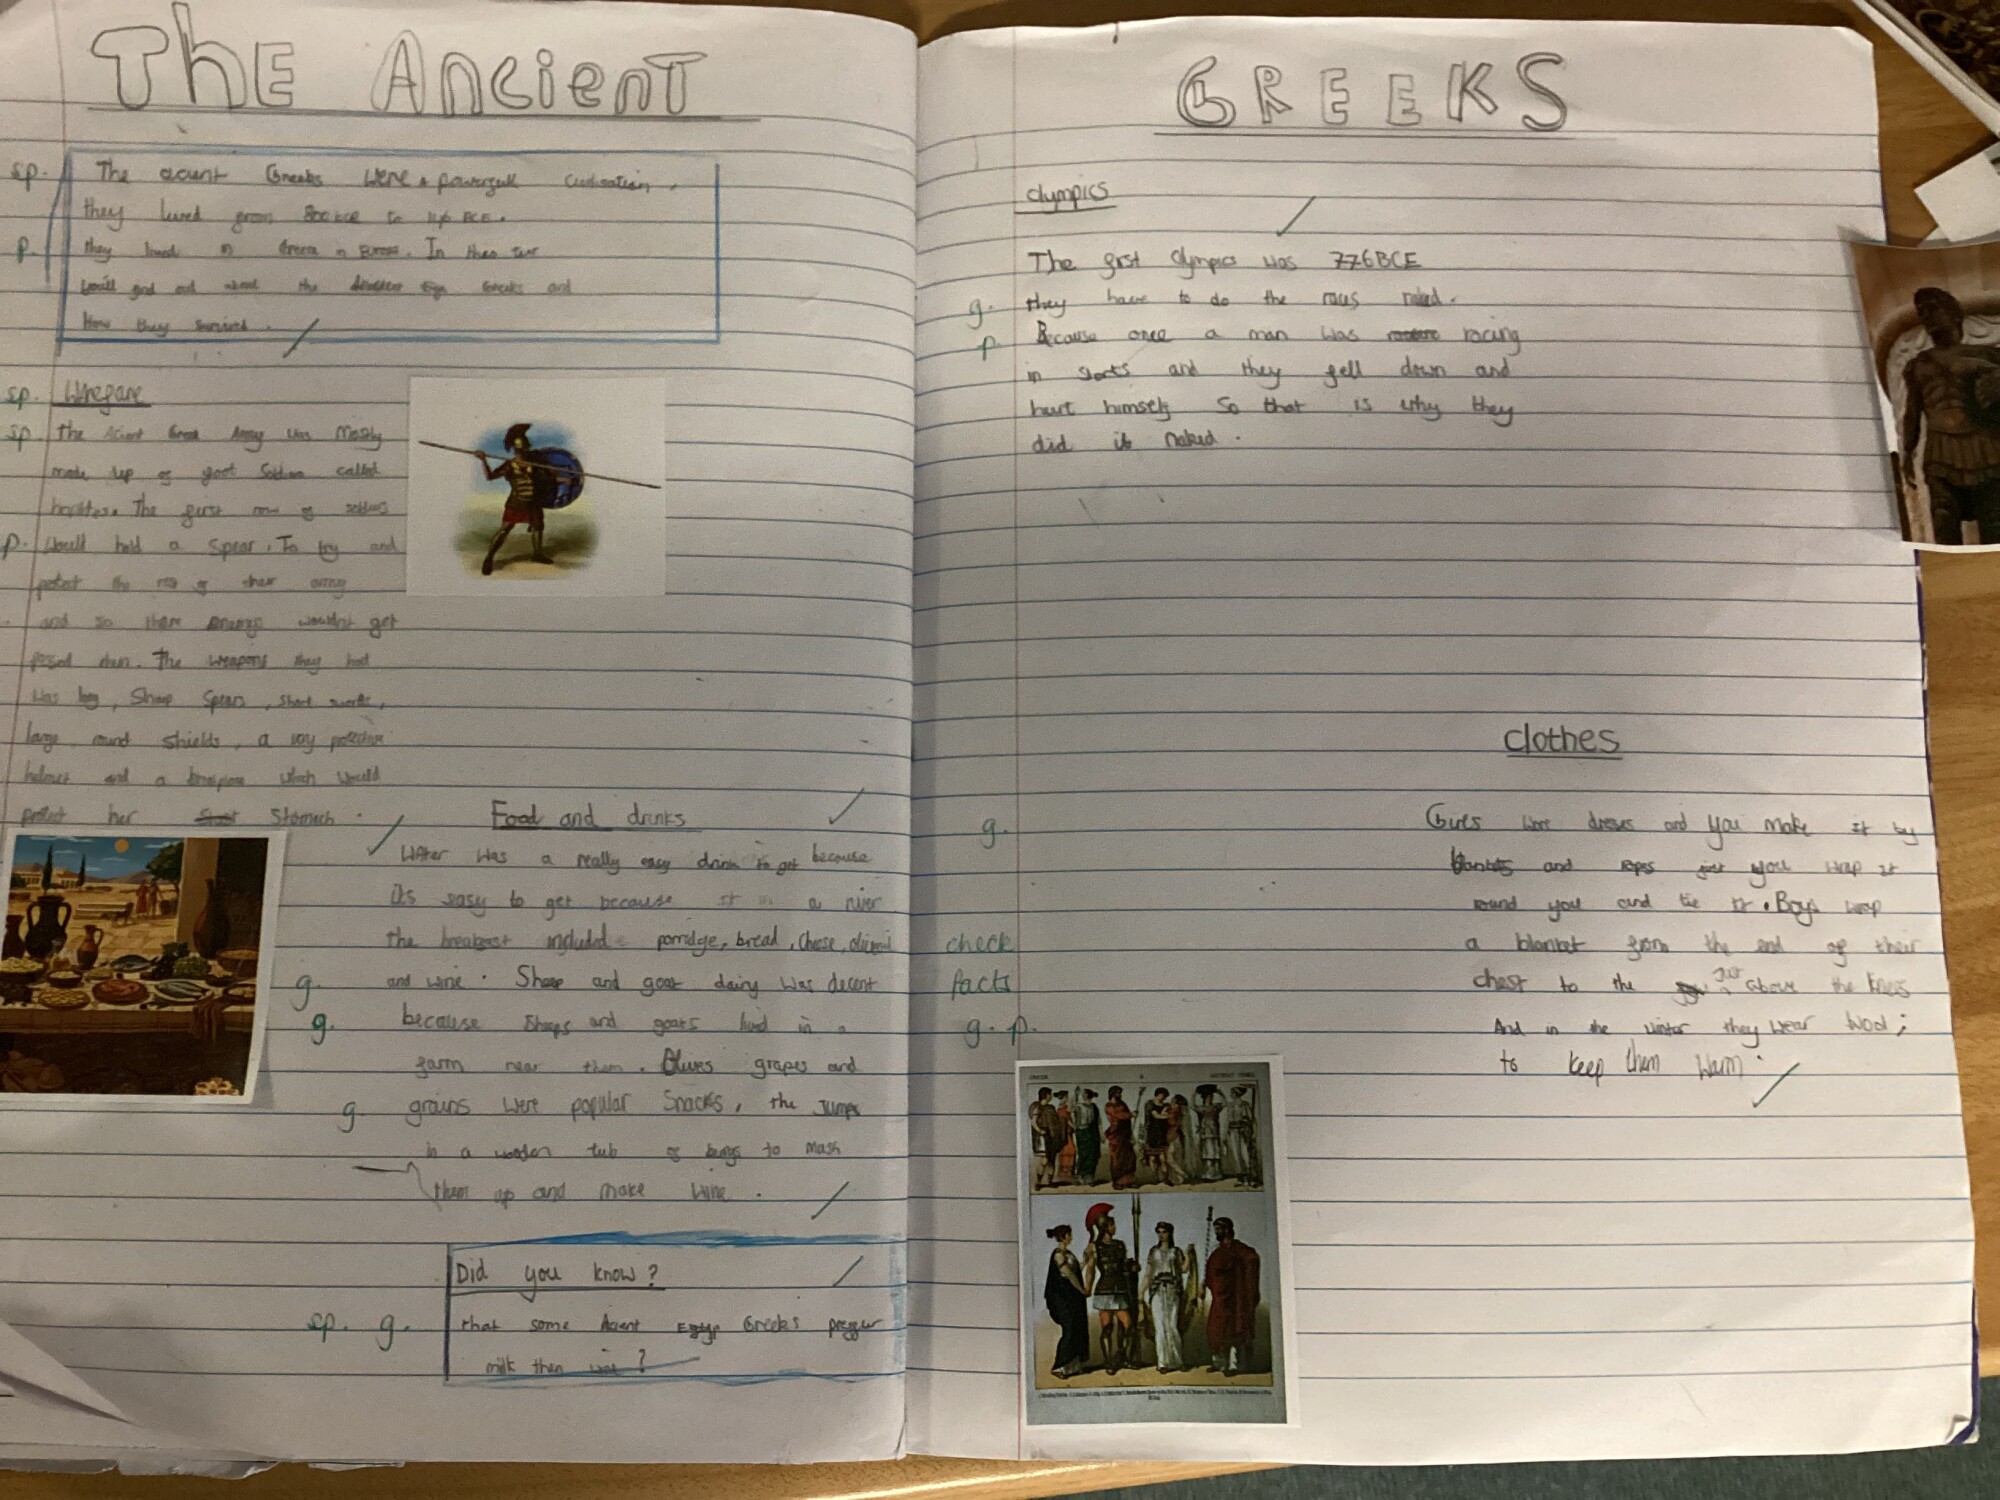 The Ancient
GREEKS
sp.
The acient Greeks were a powerfull civilisation.
they lived from 800 BCE to 146 BCE.
p.
they lived in Greece in Europe. In
you'll find out about the Greeks and
How they survived.
sp. Wrefare
sp. the Acient Greek Army was Mostly
made up of foot called
hoplites. The first row of
p. Would hold a Spear. To try and
potect the of their army
and so there enemys wouldnt get
them. The weapons they had
was long, Sharp Spears, short
large, round shields, a very
helmet and a which would
potect her Stomach.
Food and drinks
Water was a really easy drink to get because
its easy to get because it a river
the breakfast included porridge, bread, Cheese,
g. and wine. Sheep and goat dairy was decent
g. because Sheeps and goats lived in a
farm near them. Olives grapes and
g. grains were popular Snacks, the Jumps
in a wooden tub of to mash
them up and make Wine.
Did you know?
sp. g. that some Acient Greeks preffur
milk then wine?
Olympics
The first Olympics was 776BCE
g. they have to do the naked.
p. Because once a man was racing
in and they fell down and
hurt himself So that is why they
did it naked.
clothes
g. wore and you make it by
and ropes just you wrap it
round you and tie it. Boys wrap
check a blanket from the end of their
facts chest to the above the
g. p. And in the winter they wear Wool;
to keep them Warm.